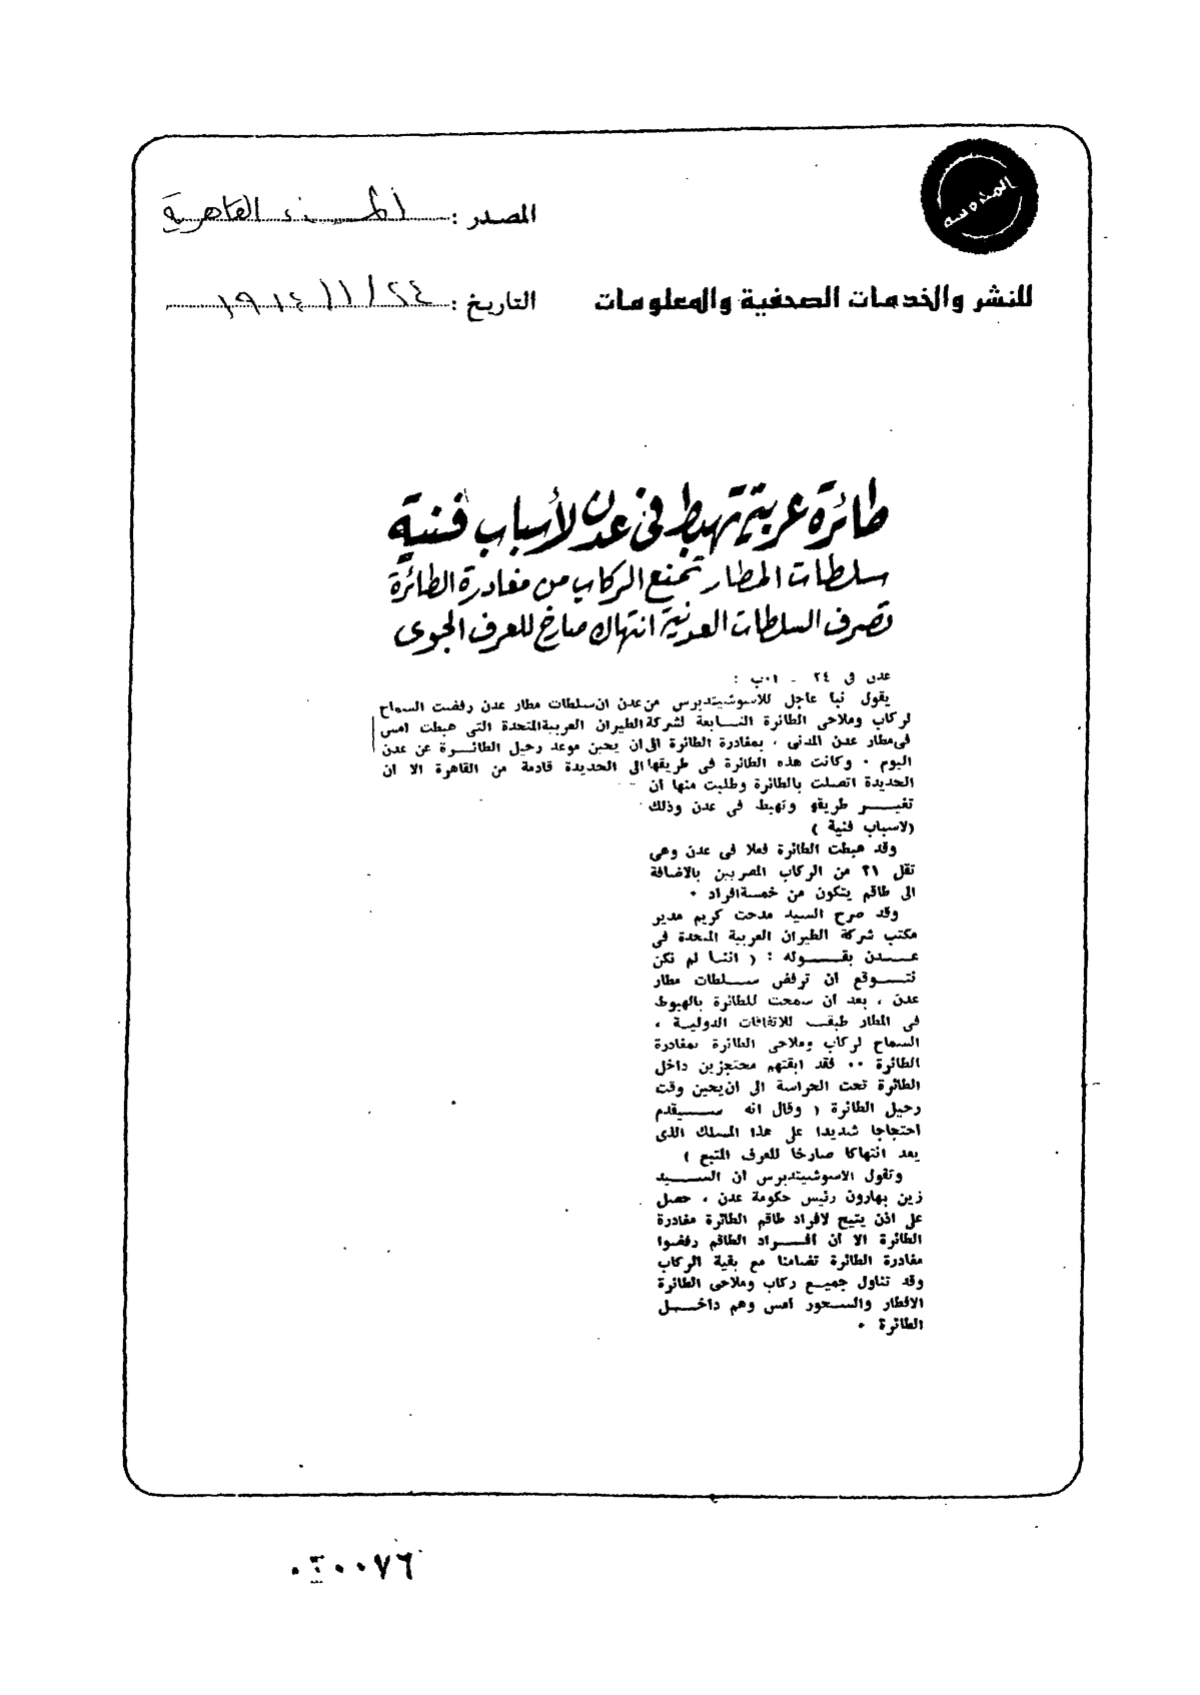 المهندسه
المصدر : المساء القاهرية
للنشر والخدمات الصحفية والمعلومات
التاريخ : ٢٤ / ١ / ١٩٦٤
طائرة عربية تهبط فى عدن لأسباب فنية
سلطات المطار تمنع الركاب من مغادرة الطائرة
تصرف السلطات العدنية انتهاك صارخ للعرف الجوى
عدن فى ٢٤ ـ ا.ب :
يقول نبا عاجل للاسوشيتدبرس من عدن ان سلطات مطار عدن رفضت السماح
لركاب وملاحى الطائرة التابعة لشركة الطيران العربية المتحدة التى هبطت امس
فى مطار عدن المدنى ، بمغادرة الطائرة الى ان يحين موعد رحيل الطائرة عن عدن
اليوم . وكانت هذه الطائرة فى طريقها الى الحديدة قادمة من القاهرة الا ان
الحديدة اتصلت بالطائرة وطلبت منها ان
تغير طريقها وتهبط فى عدن وذلك
(لاسباب فنية )
وقد هبطت الطائرة فعلا فى عدن وهى
تقل ٢١ من الركاب المصريين بالاضافة
الى طاقم يتكون من خمسة افراد .
وقد صرح السيد مدحت كريم مدير
مكتب شركة الطيران العربية المتحدة فى
عدن بقوله : ( اننا لم نكن
نتوقع ان ترفض سلطات مطار
عدن ، بعد ان سمحت للطائرة بالهبوط
فى المطار طبقا للاتفاقات الدولية ،
السماح لركاب وملاحى الطائرة بمغادرة
الطائرة .. فقد ابقتهم محتجزين داخل
الطائرة تحت الحراسة الى ان يحين وقت
رحيل الطائرة ( وقال انه سيقدم
احتجاجا شديدا على هذا المسلك الذى
يعد انتهاكا صارخا للعرف المتبع )
وتقول الاسوشيتدبرس ان السيد
زين بهارون رئيس حكومة عدن ، حصل
على اذن يتيح لافراد طاقم الطائرة مغادرة
الطائرة الا ان افراد الطاقم رفضوا
مغادرة الطائرة تضامنا مع بقية الركاب
وقد تناول جميع ركاب وملاحى الطائرة
الافطار والسحور امس وهم داخل
الطائرة .